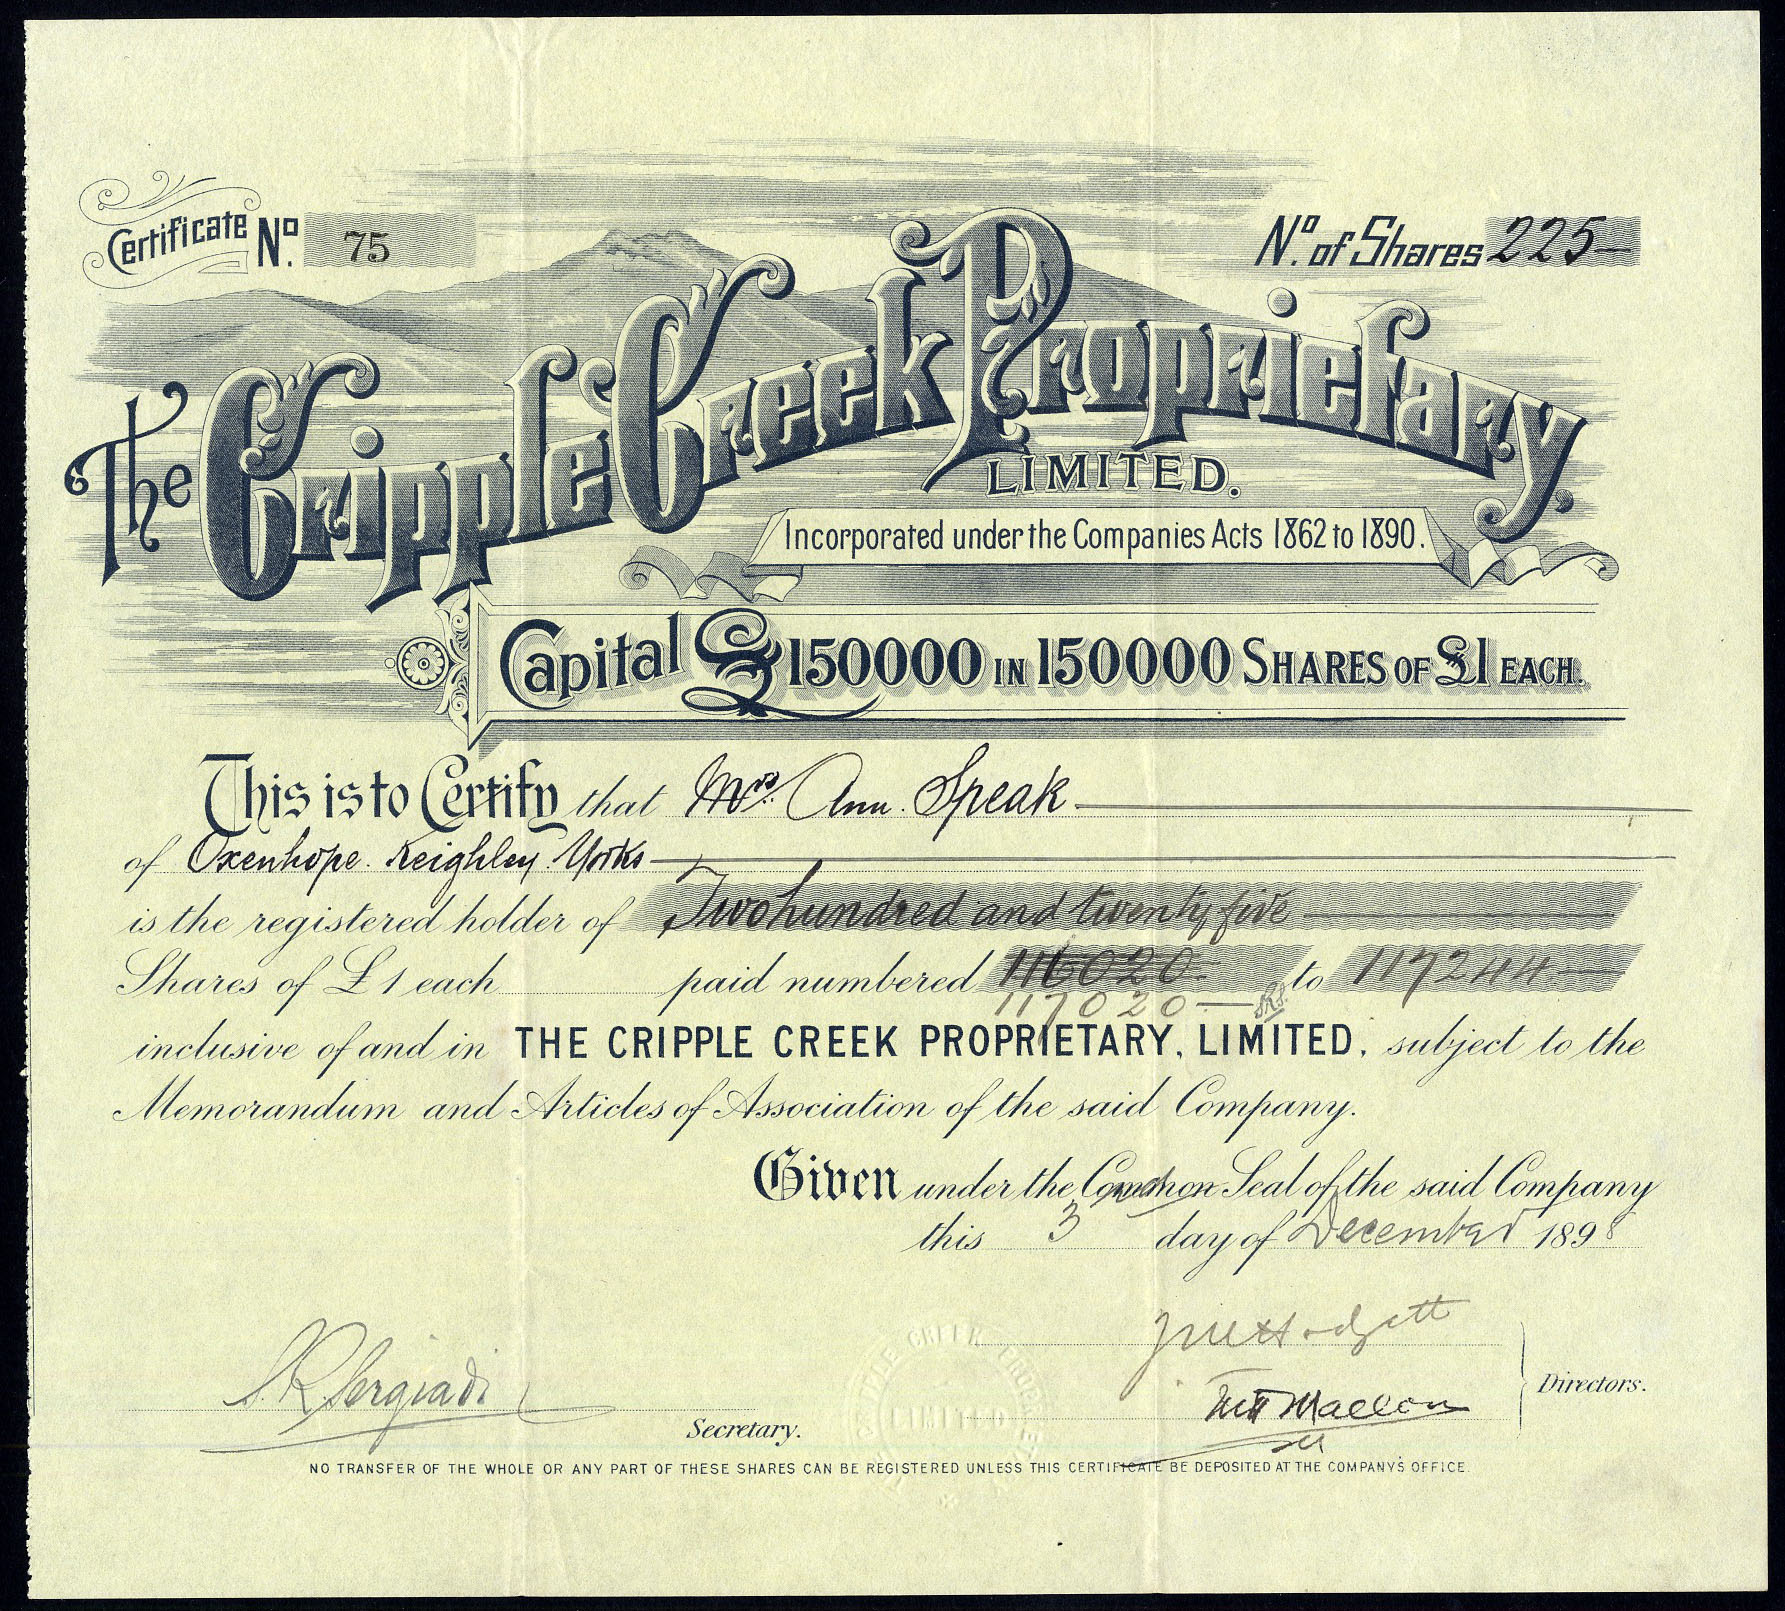 Certificate No. 75
No. of Shares 225
The Cripple Creek Proprietary,
LIMITED.
Incorporated under the Companies Acts 1862 to 1890.
Capital £150000 IN 150000 SHARES OF £1 EACH.
This is to Certify that Mrs. Ann. Speak
of Oxenhope. Keighley. Yorks
is the registered holder of Two hundred and twenty five
Shares of £1 each paid numbered 116020 to 117244
117020
inclusive of and in THE CRIPPLE CREEK PROPRIETARY, LIMITED, subject to the
Memorandum and Articles of Association of the said Company.
Given under the Common Seal of the said Company
this 3 day of December 1898
Directors.
Secretary.
CRIPPLE CREEK PROPRIETARY
LIMITED
NO TRANSFER OF THE WHOLE OR ANY PART OF THESE SHARES CAN BE REGISTERED UNLESS THIS CERTIFICATE BE DEPOSITED AT THE COMPANY'S OFFICE.